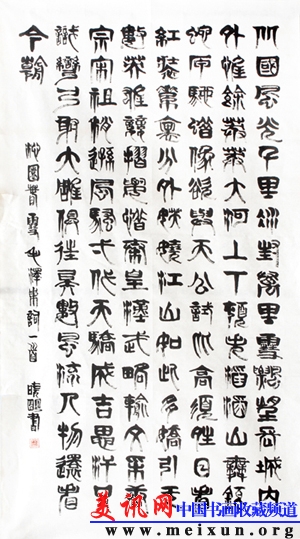 北國風光千里冰封萬里雪飄望長城內
外惟餘莽莽大河上下頓失滔滔山舞銀
蛇原馳蠟象欲與天公試比高須晴日看
紅裝素裹分外妖嬈江山如此多嬌引無
數英雄競折腰惜秦皇漢武略輸文采唐
宗宋祖稍遜風騷一代天驕成吉思汗只
識彎弓射大雕俱往矣數風流人物還看
今朝
沁園春雪毛澤東詞一首 書
美讯网中国书画收藏频道
www.meixun.org